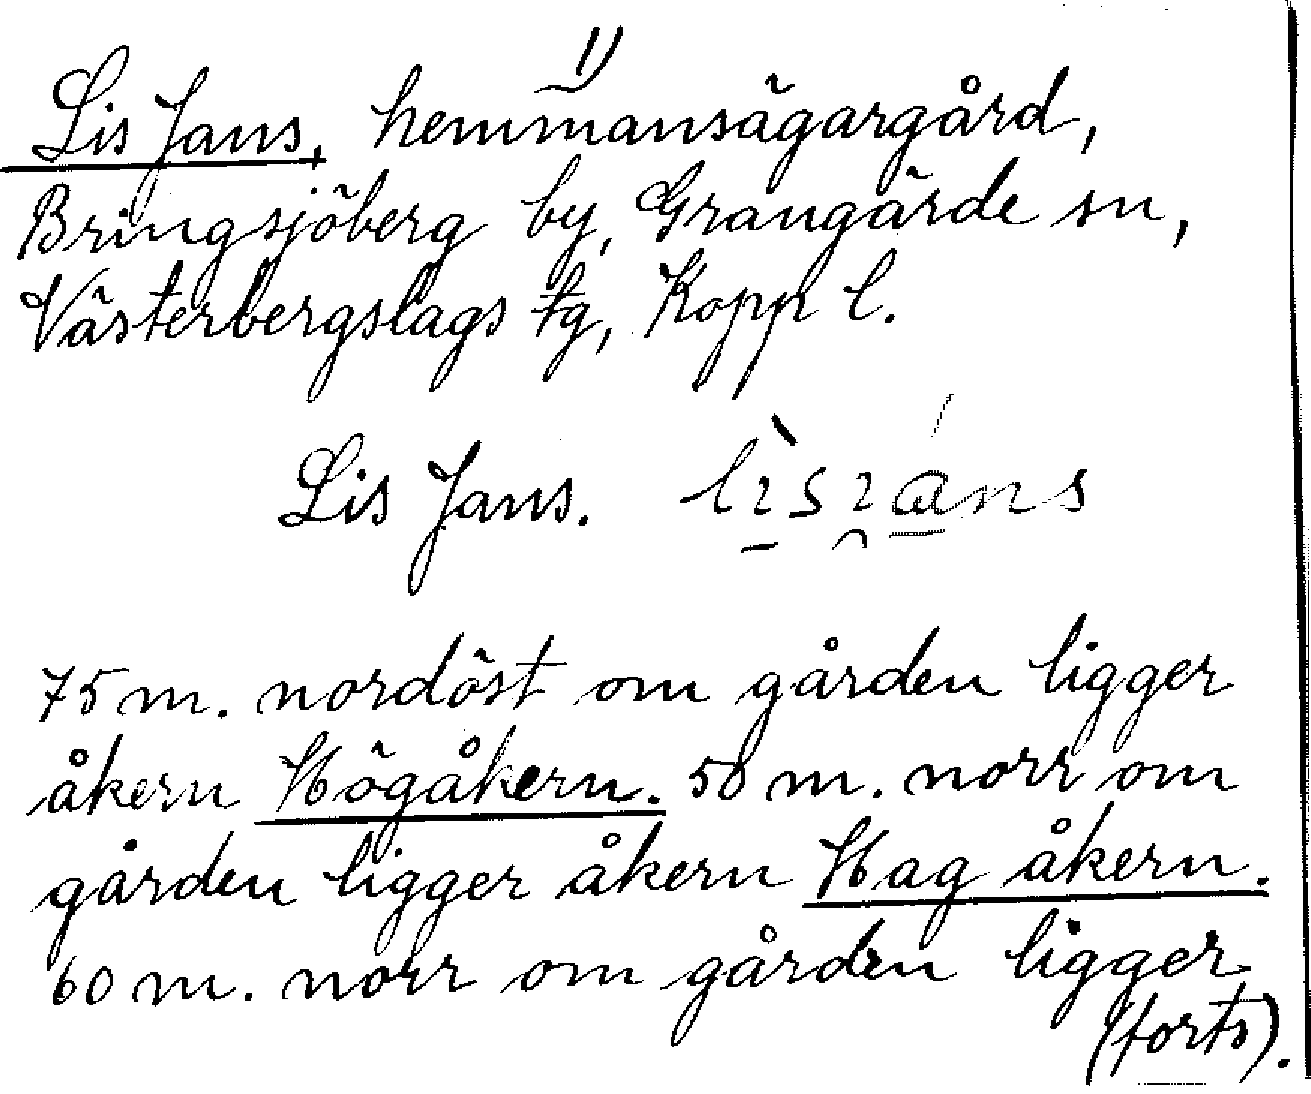 1)
Lis Jans, hemmansägargård,
Bringsjöberg by, Grangärde sn,
Västerbergslags fg, Kopp l.
Lis Jans.
75 m. nordöst om gården ligger
åkern Högåkern. 50 m. norr om
gården ligger åkern Hag åkern.
60 m. norr om gården ligger
(forts).